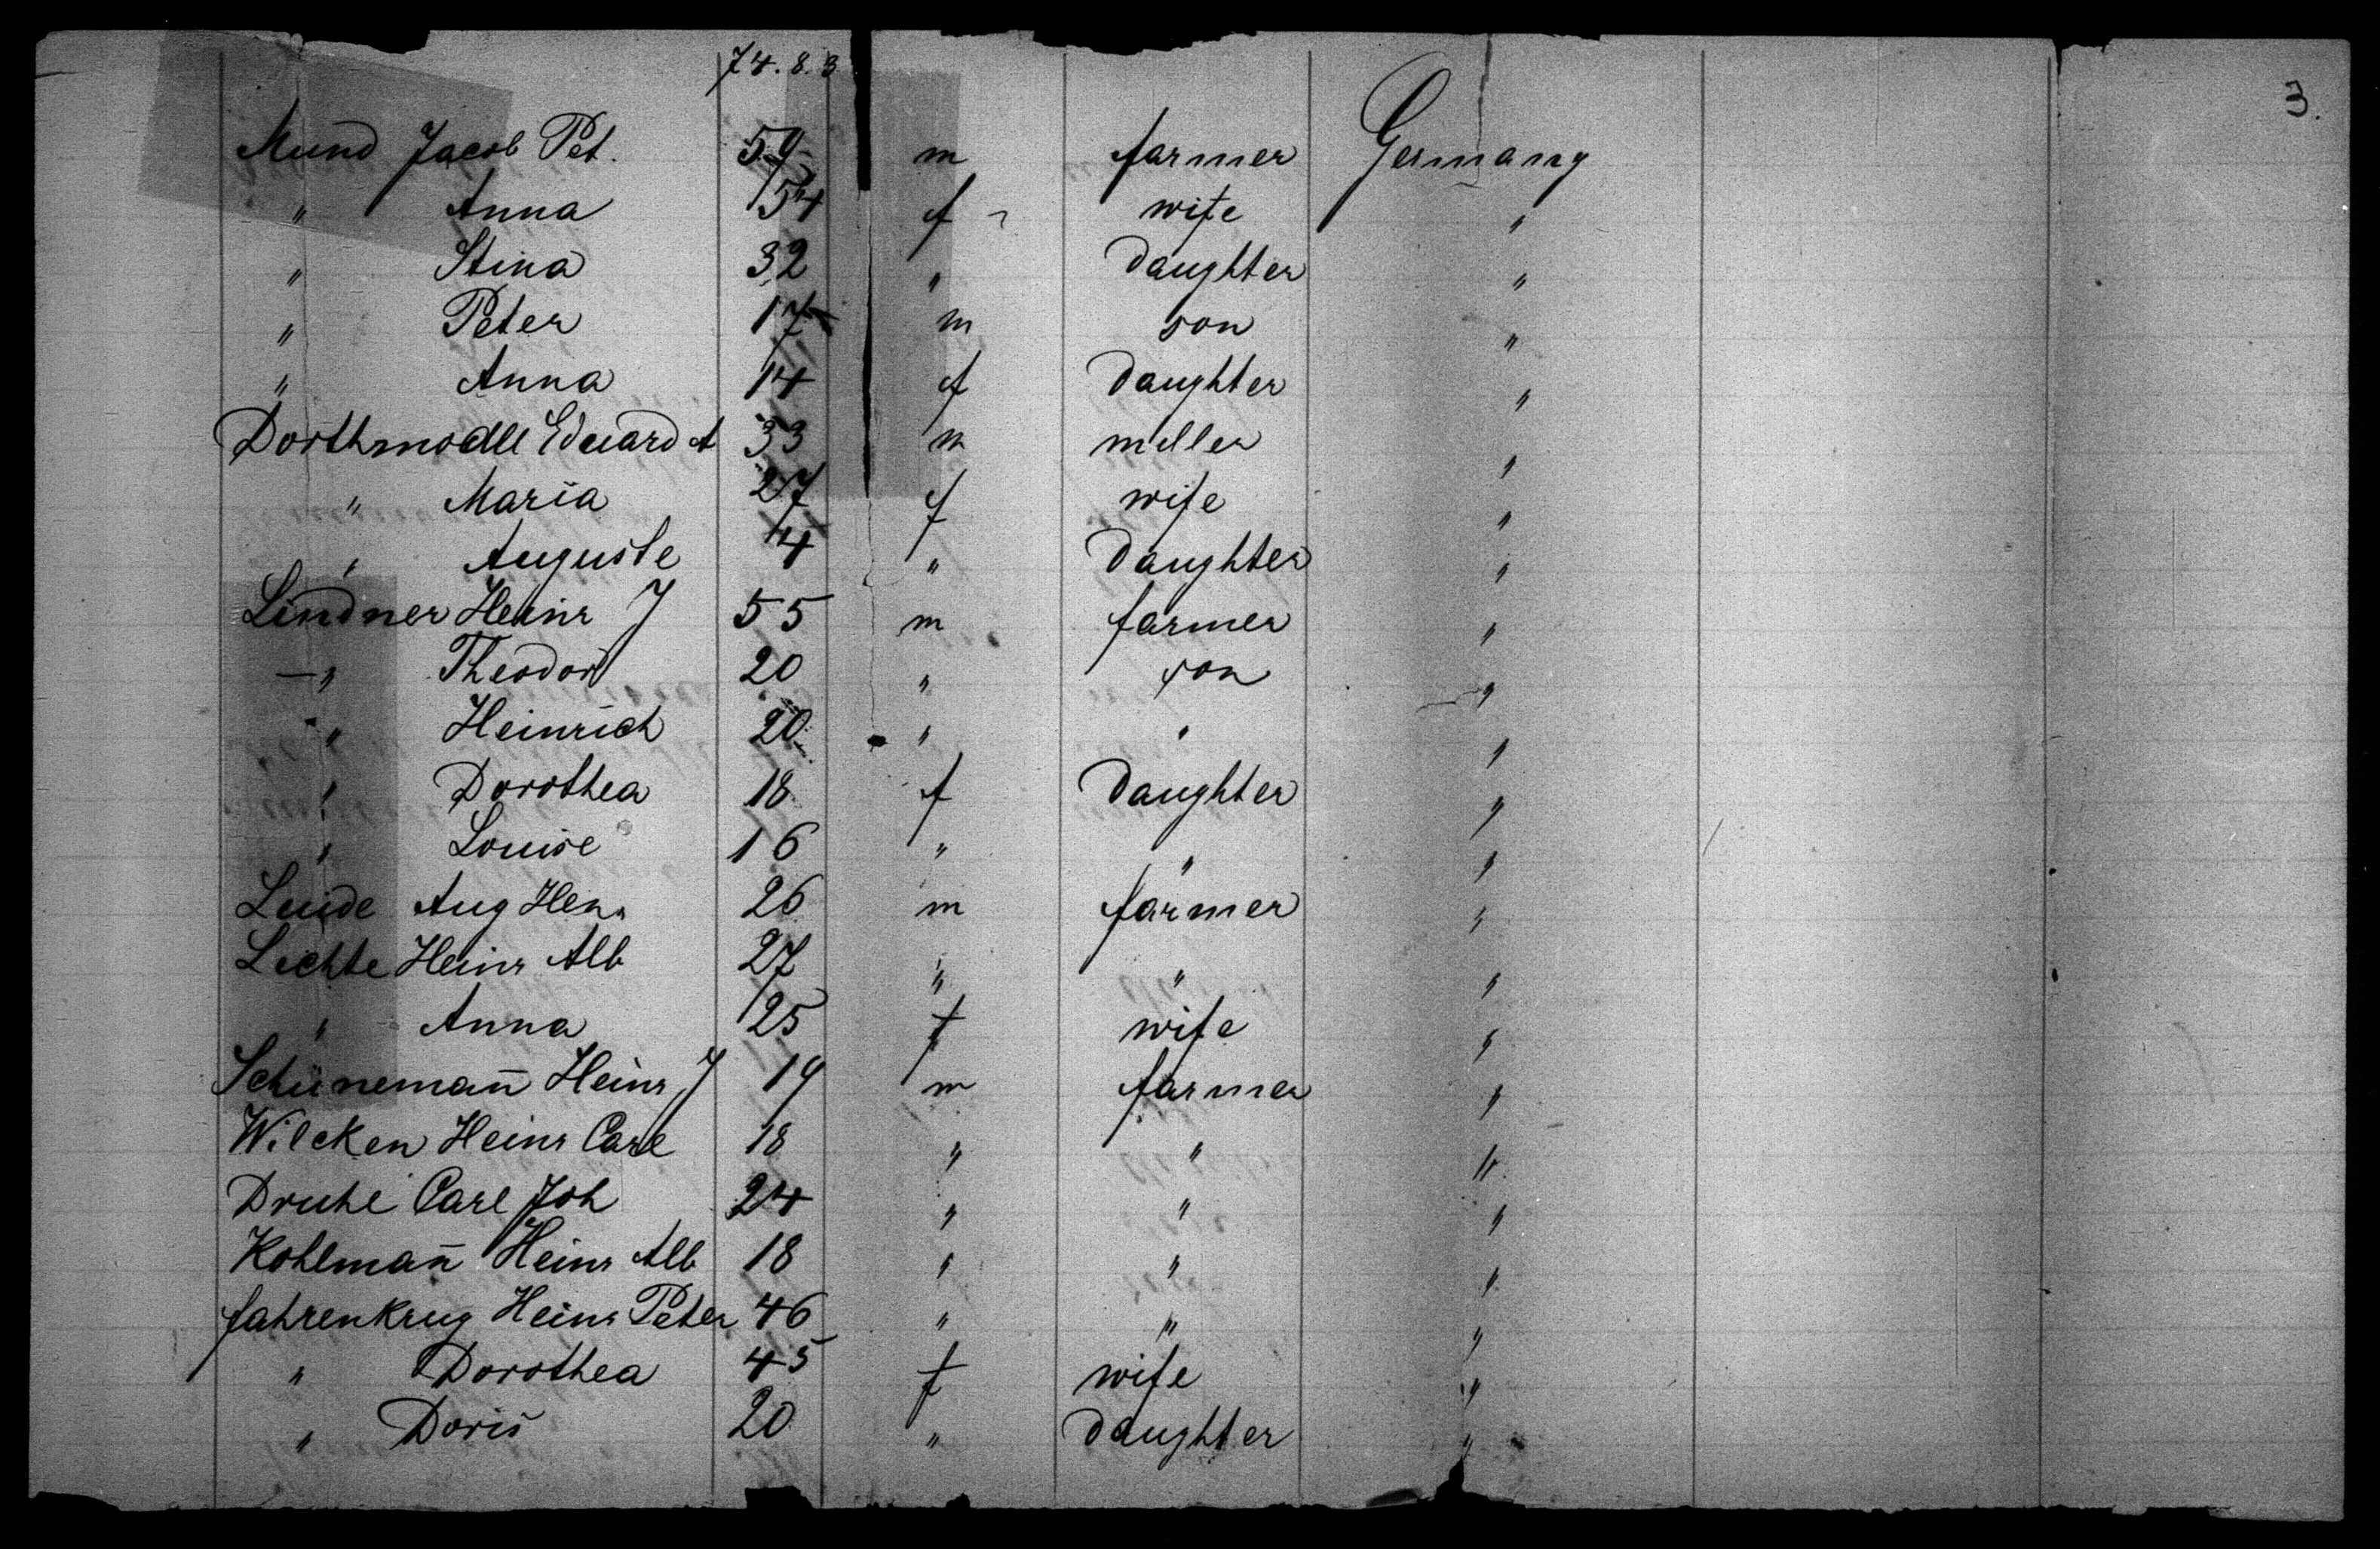 74. 8. 3
3.
Mund Jacob Pet. 59 m farmer Germany
" Anna 54 f wife "
" Stina 32 " daughter "
" Peter 17 m son "
" Anna 14 f daughter "
Dorthmodll Eduard A 33 m miller "
" Maria 27 f wife "
" Auguste 4 " daughter "
Lindner Heinr J 55 m farmer "
" Theodor 20 " son "
" Heinrich 20 " " "
" Dorothea 18 f daughter "
" Louise 16 " " "
Luide Aug Henr 26 m farmer "
Lichte Heinr Alb 27 " " "
" Anna 25 f wife "
Schünemañ Heinr J 19 m farmer "
Wilcken Heinr Carl 18 " " "
Druhe Carl Joh 24 " " "
Kohlmañ Heinr Alb 18 " " "
fahrenkrug Heinr Peter 46 " " "
" Dorothea 45 f wife "
" Doris 20 " daughter "